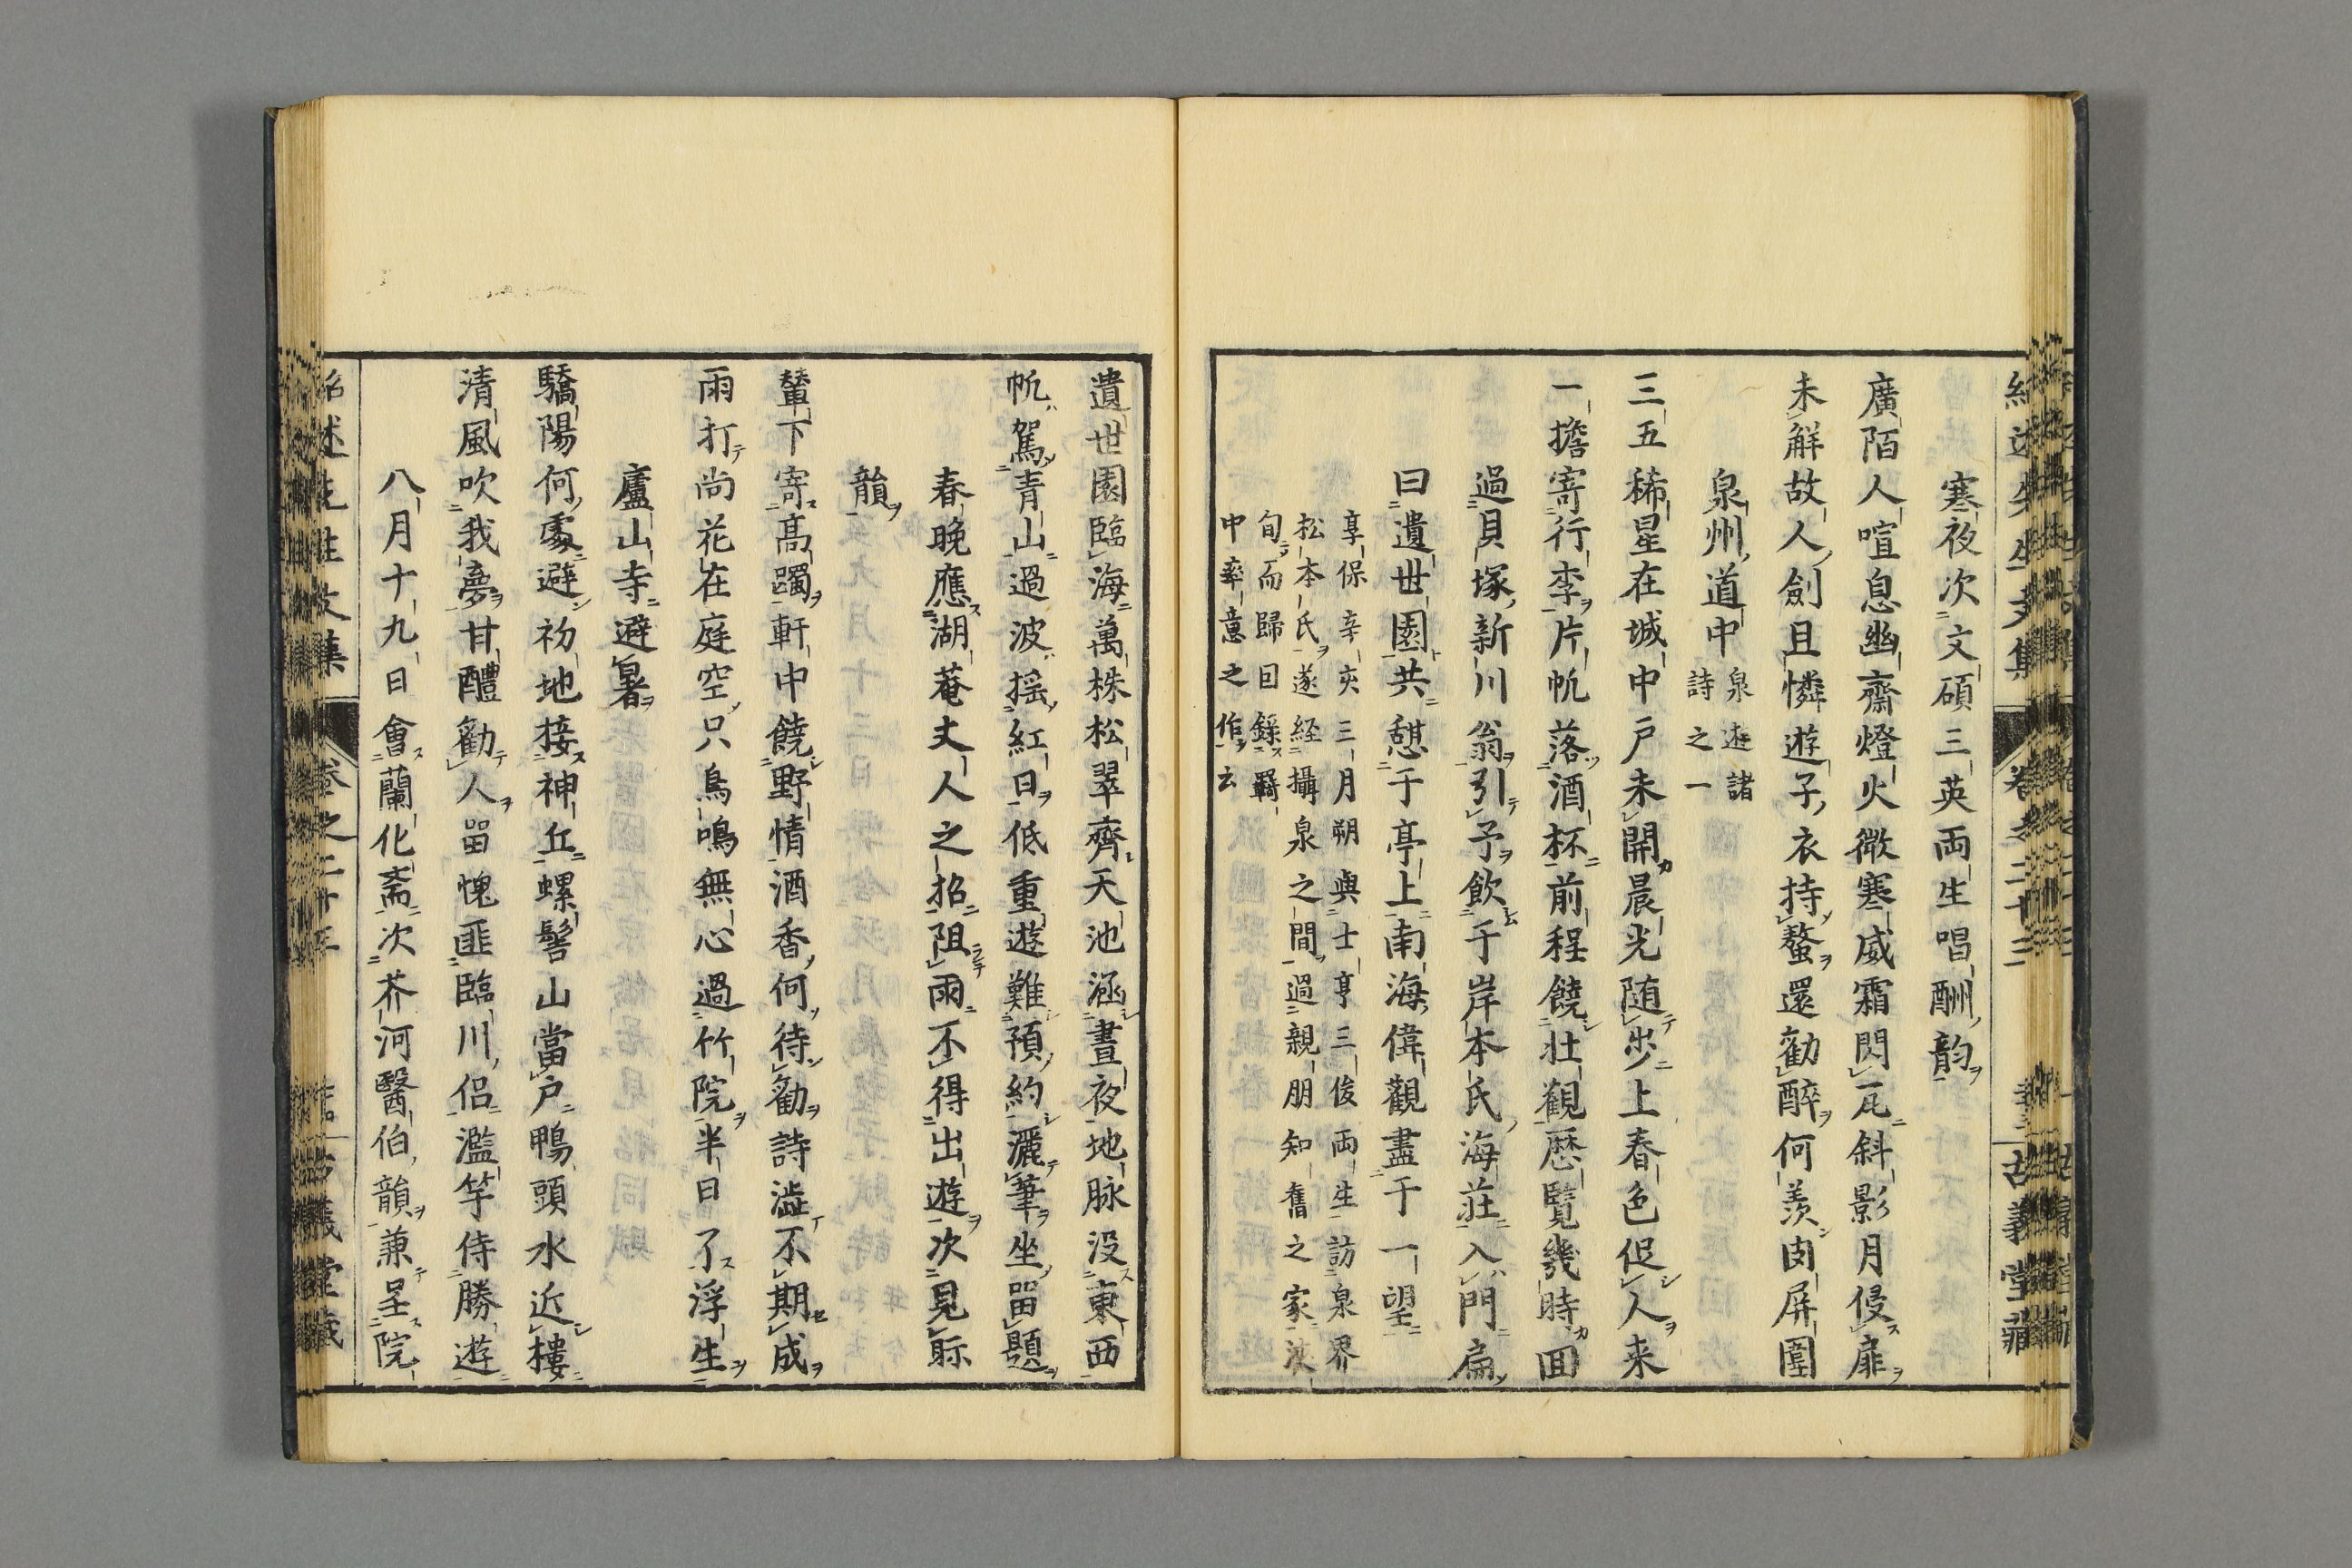 寒夜次文碩三英両生唱酬韵
廣陌人喧息幽齋燈火微寒威霜閃瓦斜影月侵扉
未解故人劍且憐遊子衣持螯還勧醉何羨肉屏圍
泉州道中
泉遊諸
詩之一
三五稀星在城中戸未開晨光随歩上春色促人来
一擔寄行李片帆落酒杯前程饒壮観歴覧幾時回
過貝塚新川翁引予飲于岸本氏海荘入門扁
曰遺世園共憩于亭上南海偉觀盡于一望
享保辛亥三月朔與士亨三俊両生訪泉界
松本氏遂経攝泉之間過親朋知舊之家浹
旬而歸因錄羇
中率意之作云
遺世園臨海萬株松翠齊天池涵晝夜地脉没東西
帆駕青山過波揺紅日低重遊難預約灑筆坐畱題
春晩應湖菴丈人之招阻雨不得出遊次見眎
韻
輦下寄髙躅軒中饒野情酒香何待勧詩澁不期成
雨打尚花在庭空只鳥鳴無心過竹院半日了浮生
廬山寺避暑
驕陽何處避初地接神丘螺髻山當户鴨頭水近樓
清風吹我夢甘醴勧人畱愧匪臨川侶濫竽侍勝遊
八月十九日會蘭化斎次芥河醫伯韻兼呈院
紹述先生文集
卷之二十三
古義堂蔵